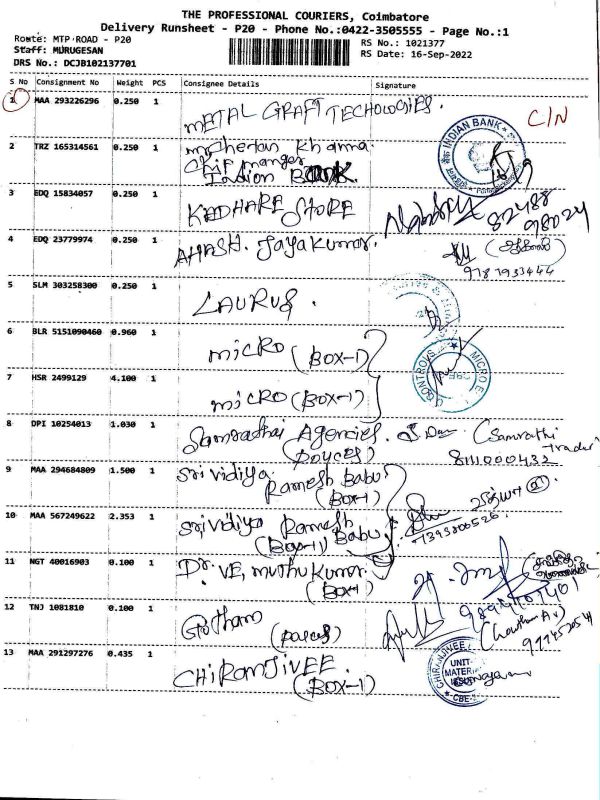 THE PROFESSIONAL COURIERS, Coimbatore
Delivery Runsheet - P20 - Phone No.:0422-3505555 - Page No.:1
Route: MTP ROAD - P20
RS No.: 1021377
Staff: MURUGESAN
RS Date: 16-Sep-2022
DRS No.: DCJB102137701
S No Consignment No Weight PCS Consignee Details Signature
1 MAA 293226296 0.250 1 METAL GRAFT TECHOLOGIES. C/N
INDIAN BANK
2 TRZ 165314561 0.250 1 mr Chetan Khanna
manger
Indion Bank
3 EDQ 15834057 0.250 1 KEDHARE STORE 82488
98024
4 EDQ 23779974 0.250 1 AHASH. Jayakumar.
5 SLM 303258300 0.250 1 LAURUS.
6 BLR 5151090460 0.960 1 MICRO (BOX-1)
7 HSR 2499129 4.100 1 MICRO (BOX-1)
8 DPI 10254013 1.030 1 Samrathai Agencies. (Samrathi
trader)
8111000432
9 MAA 294684809 1.500 1 Srividiya
Ramesh Babu
(BOX-1)
10 MAA 567249622 2.353 1 Srividiya Ramesh
Babu
(Box-1)
11 NGT 40016903 0.100 1 Dr. VE, muthu kumar.
(BOX-1)
12 TNJ 1081810 0.100 1 Gotham (Gowtham A.V)
13 MAA 291297276 0.435 1 CHIRAMJIVEE.
(BOX-1)
UNIT-